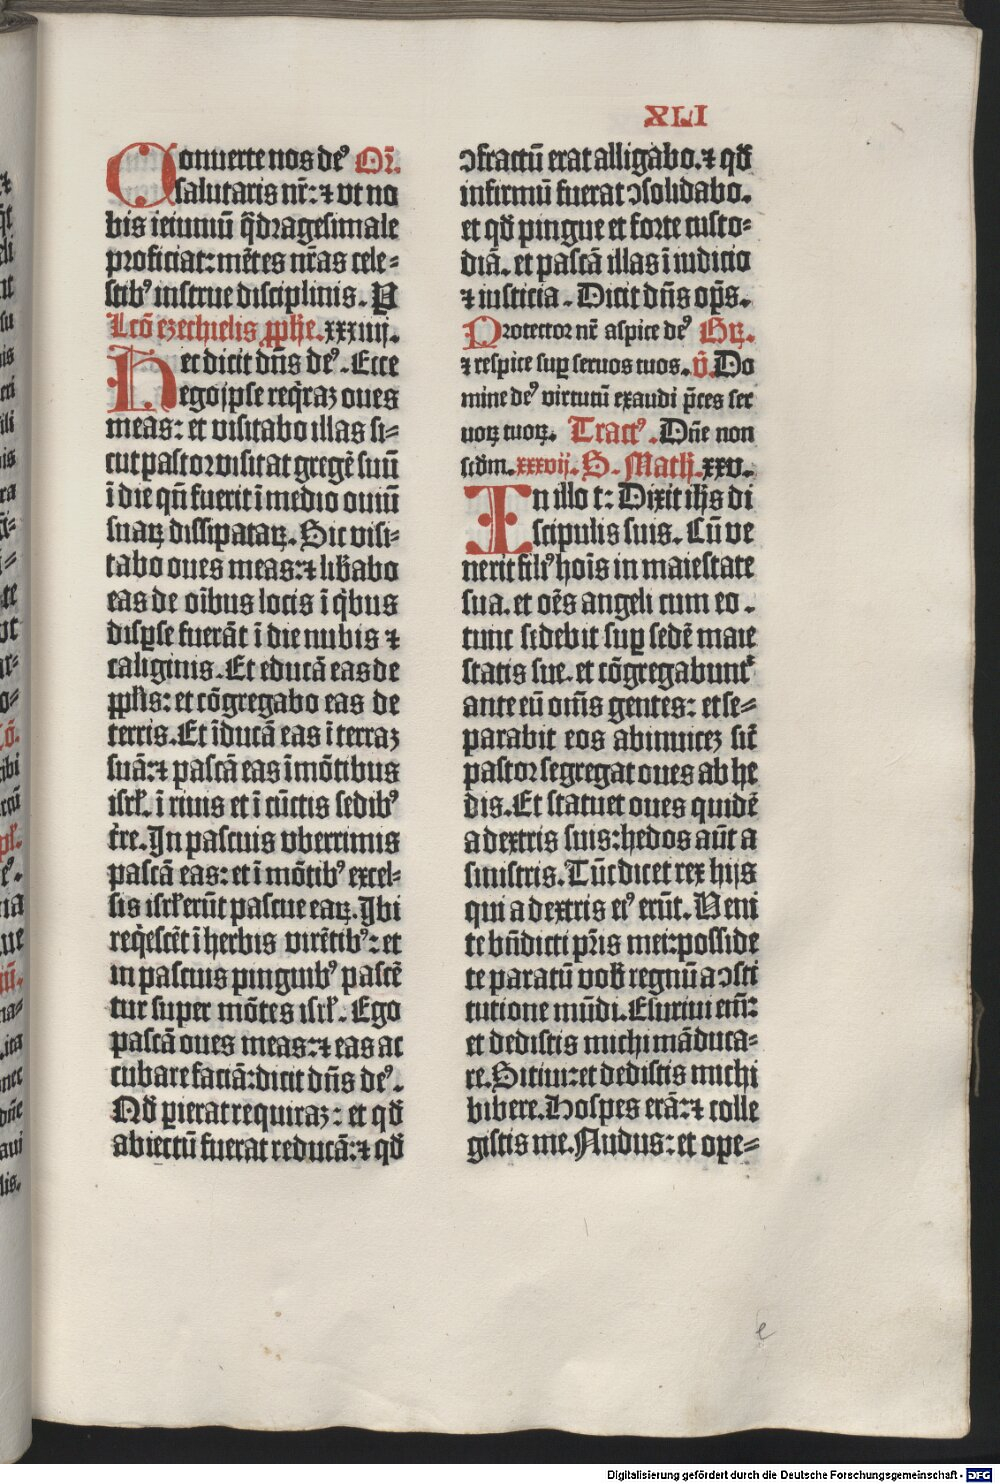 XLI
Conuerte nos deꝰ Or̄.
salutaris nr̄: ⁊ vt no
bis ieiuniū q̄dragesimale
proficiat: mētes nr̄as cele⸗
stibꝰ instrue disciplinis. P
Lcō ezechielis ꝓph̄e. xxxiiij.
Hec dicit dn̄s deꝰ. Ecce
ego ip̄e req̇raꝫ oues
meas: et visitabo illas si⸗
cut pastor visitat gregē suū
ī die qn̄ fuerit ī medio ouiū
suaꝝ dissipataꝝ. Sic visi⸗
tabo oues meas: ⁊ lib̄abo
eas de oībus locis ī q̇bus
disꝑse fuerāt ī die nubis ⁊
caliginis. Et educā eas de
ppl̄is: et cōgregabo eas de
terris. Et īducā eas ī terraꝫ
suā: ⁊ pascā eas ī mōtibus
isrł. ī riuis et ī cūctis sedibꝰ
tr̄e. In pascuis vberrimis
pascā eas: et ī mōtibꝰ excel⸗
sis isrł erūt pascue eaꝝ. Ibi
req̇escēt ī herbis virētibꝰ: et
in pascuis pinguibꝰ pascē
tur super mōtes isrł. Ego
pascā oues meas: ⁊ eas ac
cubare faciā: dicit dn̄s deꝰ.
Qđ ꝑierat requiraꝫ: et qđ
abiectū fuerat reducā: ⁊ qđ
ↄfractū erat alligabo. ⁊ qđ
infirmū fuerat ↄsolidabo.
et qđ pingue et forte custo⸗
diā. et pascā illas ī iudicio
⁊ iusticia. Dicit dn̄s op̄s.
Protector nr̄ aspice deꝰ Gꝝ.
⁊ respice suꝑ seruos tuos. v̄. Do
mine deꝰ virtutū exaudi p̄ces ser
uoꝝ tuoꝝ. Tractꝰ. Dn̄e non
scđm. xxxvij. S. Math. xxv.
In illo t: Dixit ih̄s di
scipulis suis. Cū ve
nerit filiꝰ hoīs in maiestate
sua. et oēs angeli cum eo.
tunc sedebit suꝑ sedē maie
statis sue. et cōgregabunt᷑
ante eū om̄s gentes: et se⸗
parabit eos abinuiceꝫ sic̄
pastor segregat oues ab he
dis. Et statuet oues quidē
a dextris suis: hedos aūt a
sinistris. Tūc dicet rex hijs
qui a dextris eiꝰ erūt. Veni
te bn̄dicti pr̄is mei: posside
te paratū vob̄ regnū a ↄsti
tutione mūdi. Esuriui em̄:
et dedistis michi māduca⸗
re. Sitiui: et dedistis michi
bibere. Hospes erā: ⁊ colle
gistis me. Nudus: et ope⸗
e
Digitalisierung gefördert durch die Deutsche Forschungsgemeinschaft - DFG